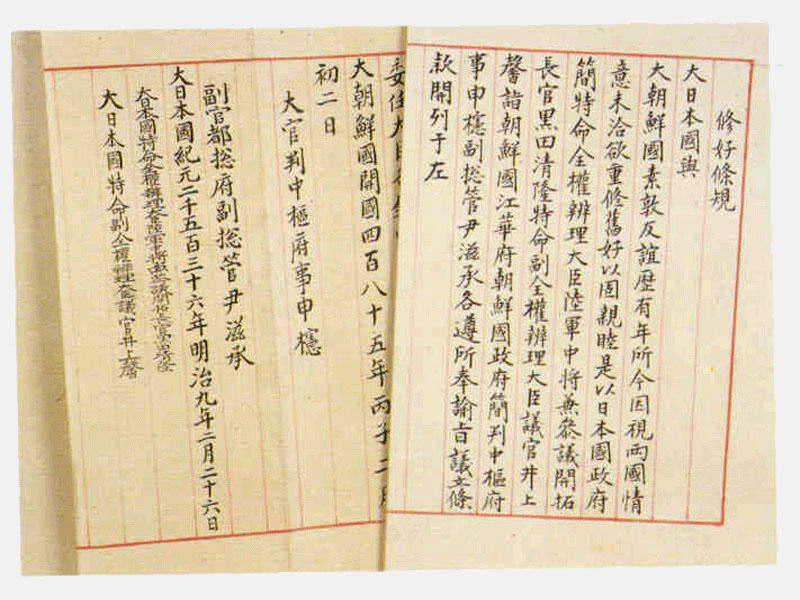 修好條規
大日本國與
大朝鮮國素敦友誼歷有年所今因視両國情
意未洽欲重修舊好以固親睦是以日本國政府
簡特命全權辨理大臣陸軍中将兼參議開拓
長官黒田清隆特命副全權辨理大臣議官井上
馨詣朝鮮國江華府朝鮮國政府簡判中樞府
事申櫶副摠管尹滋承各遵所奉諭旨議立條
款開列于左
委任大
大朝鮮國開國四百八十五年丙子二月
初二日
大官判中樞府事申櫶
副官都摠府副摠管尹滋承
大日本國紀元二千五百三十六年明治九年二月二十六日
大日本國特命全權辨理大臣陸軍中将兼參議開拓長官黒田清隆
大日本國特命副全權辨理大臣議官井上馨